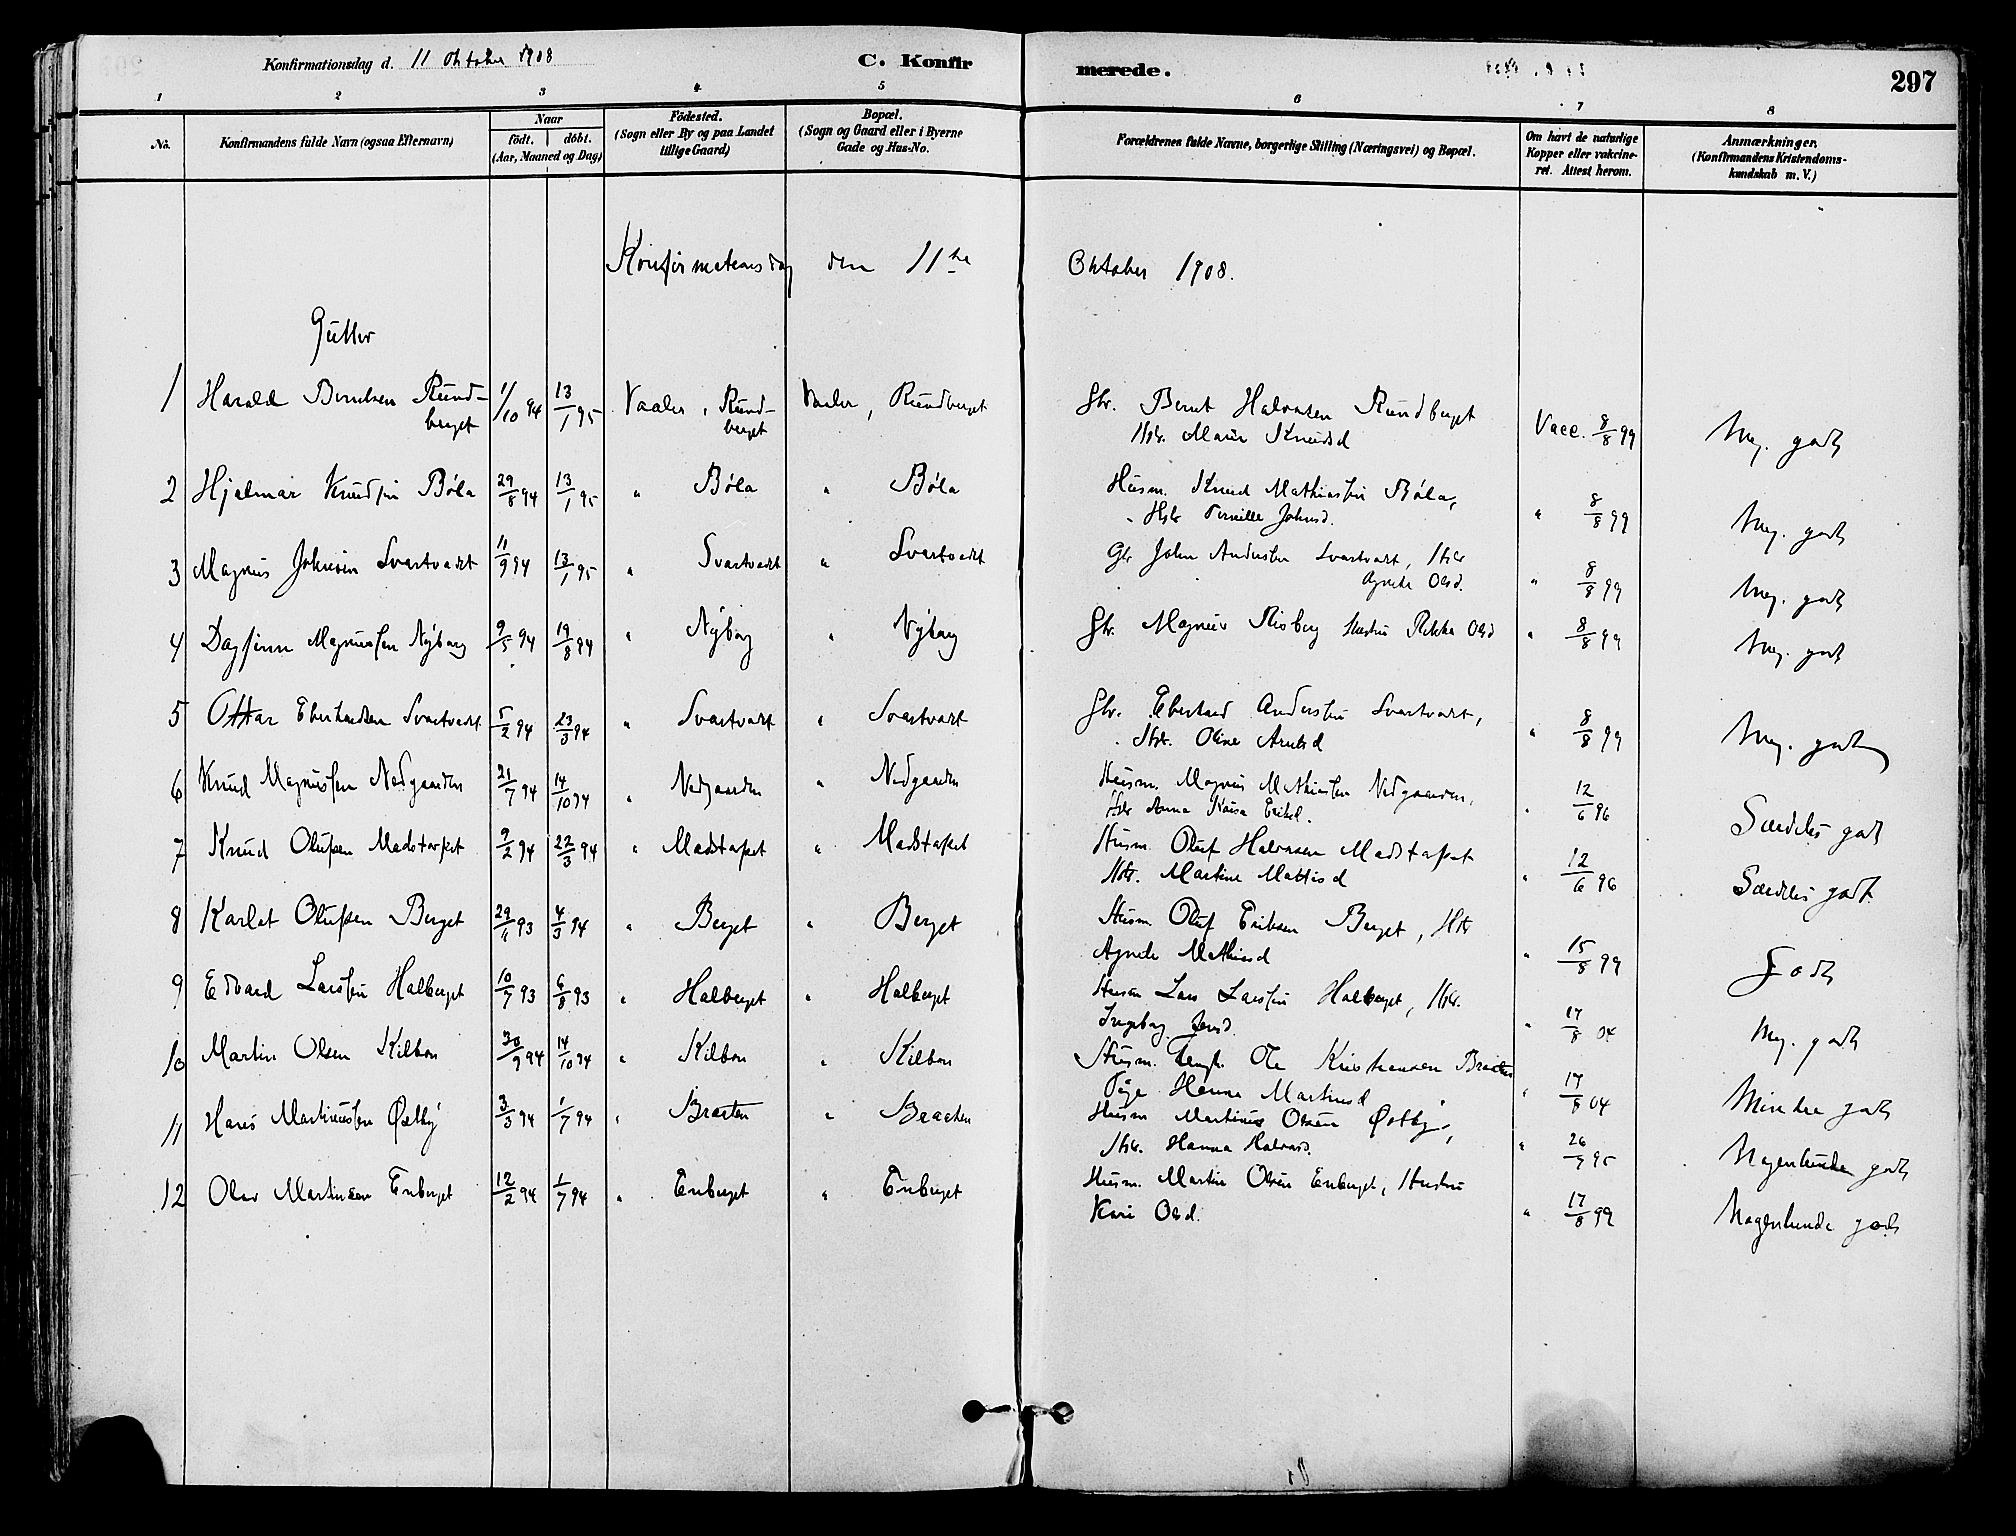 Konfirmationsdag d. 11 Oktober 1908 C. Konfir merede. 297
1 2 3 4 5 6 7 8
No. Konfirmandens fulde Navn (ogsaa Efternavn) Naar født. døbt. (Aar, Maaned og Dag) Fødested. (Sogn eller By og paa Landet tillige Gaard) Bopæl. (Sogn og Gaard eller i Byerne Gade og Hus-No. Forældrenes fulde Navne, borgerlige Stilling (Næringsvei) og Bopæl. Om havt de naturlige Kopper eller vakcineret. Attest herom. Anmærkninger. (Konfirmandens Kristendomskundskab m. V.)
Konfirmationsdag den 11te Oktober 1908.
Gutter
1 Harald Berntsen Rundberget 1/10 94 13/1 95 Vaaler, Rundberget Vaaler, Rundberget Gbr. Bernt Halvorsen Rundberget
Hstr. Marie Knudsd Vacc. 8/8 99 Meg. godt
2 Hjalmar Knudsen Bøla 29/8 94 13/1 95 " Bøla " Bøla Husm. Knud Mathiassen Bøla,
Hstr Pernille Johnsd. " 8/8 99 Meg. godt
3 Magnus Johnsen Svartvadt 11/9 94 13/1 95 " Svartvadt " Svartvadt Gbr John Andersen Svartvadt, Hstr
Agnete Olsd. " 8/8 99 Meg. godt
4 Dagfinn Magnussen Nyborg 9/5 94 19/8 94 " Nyborg " Nyborg Gbr. Magnus Risberg Hustru Rikka Olsd " 8/8 99 Meg. godt
5 Ottar Eberhardsen Svartvadt 5/2 94 23/3 94 " Svartvadt " Svartvadt Gbr. Eberhard Andersen Svartvadt,
Hstr. Oline Arntsd " 8/8 99 Meg. godt
6 Knud Magnussen Nedgaarden 21/7 94 14/10 94 " Nedgaarden " Nedgaarden Husm. Magnus Mathiassen Nedgaarden,
Hstr Anna Kaisa Eriksd. " 12/6 96 Særdeles godt
7 Knud Olufsen Madstorpet 9/2 94 22/3 94 " Madstorpet " Madstorpet Husm. Oluf Halvorsen Madstorpet
Hstr. Martine Mattisd " 12/6 96 Særdeles godt.
8 Karlot Olufsen Berget 29/11 93 4/3 94 " Berget " Berget Husm Oluf Eriksen Berget, Hstr
Agnete Mathiasd " 15/8 99 Godt
9 Edvard Larssen Halberget 10/7 93 6/8 93 " Halberget " Halberget Husm Lars Larssen Halberget, Hstr.
Ingeborg Jensd. " 17/8 04 Meg. godt
10 Martin Olsen Kilbon 30/9 94 14/10 94 " Kilbon " Kilbon Husm. Ungk. Ole Kristiansen Braaten
Pige Hanna Martinsd " 17/8 04 Mindre godt
11 Hans Martinussen Østby 3/3 94 1/7 94 " Braaten " Braaten Husm Martinus Olsen Østby,
Hstr. Hanna Halvorsd. " 26/9 95 Nogenlunde godt
12 Olav Martinsen Enberget 12/2 94 1/7 94 " Enberget " Enberget Husm. Martin Olsen Enberget, Hustru
Kari Olsd. " 17/8 99 Nogenlunde godt